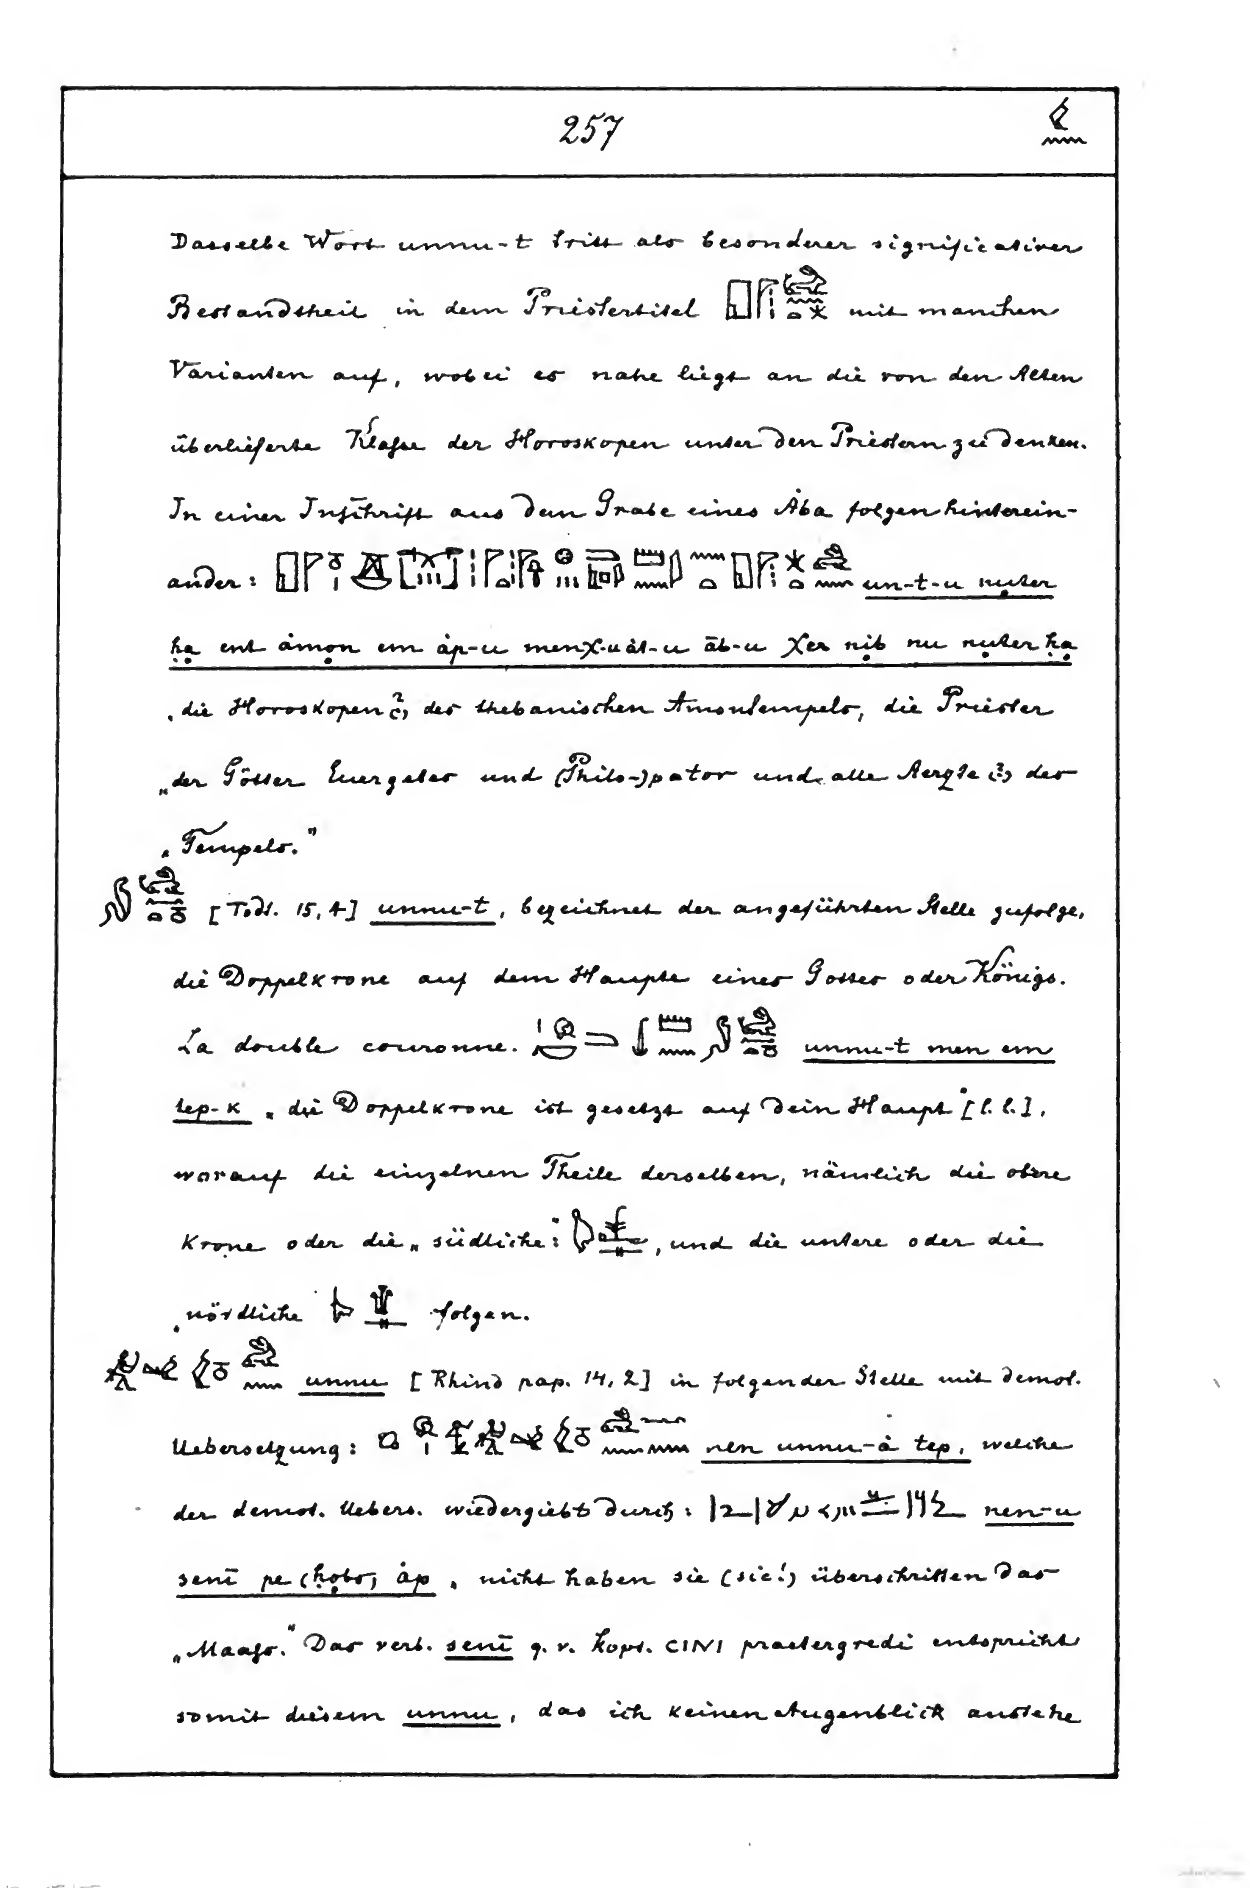 257
Dasselbe Wort unnu-t tritt als besonderer significativer
Bestandtheil in dem Priestertitel mit manchen
Varianten auf, wobei es nahe liegt an die von den Alten
überlieferte Klasse der Horoskopen unter den Priestern zu denken.
In einer Inschrift aus dem Grabe eines Åba folgen hinterein-
ander: un-t-u nuter
ḥa ent åmon em åp-u menχ-u åt-u āb-u χer nib nu nuter ḥa
„die Horoskopen (?) des thebanischen Amontempels, die Priester
„der Götter Euergetes und (Philo-)pator und alle Aerzte (?) des
„Tempels."
[Todt. 15, 4] unnu-t, bezeichnet der angeführten Stelle zufolge,
die Doppelkrone auf dem Haupte eines Gottes oder Königs.
La double couronne. unnu-t men em
tep-k „die Doppelkrone ist gesetzt auf dein Haupt" [l. l.],
worauf die einzelnen Theile derselben, nämlich die obere
Krone oder die „südliche": , und die untere oder die
„nördliche folgen.
unnu [Rhind pap. 14, 2] in folgender Stelle mit demot.
Uebersetzung: nen unnu-å tep, welche
der demot. Uebers. wiedergiebt durch: nen-u
senī pe (ḥobs) åp „nicht haben sie (sic!) überschritten das
„Maaſs." Das verb. senī q. v. kopt. CINI praetergredi entspricht
somit diesem unnu, das ich keinen Augenblick anstehe